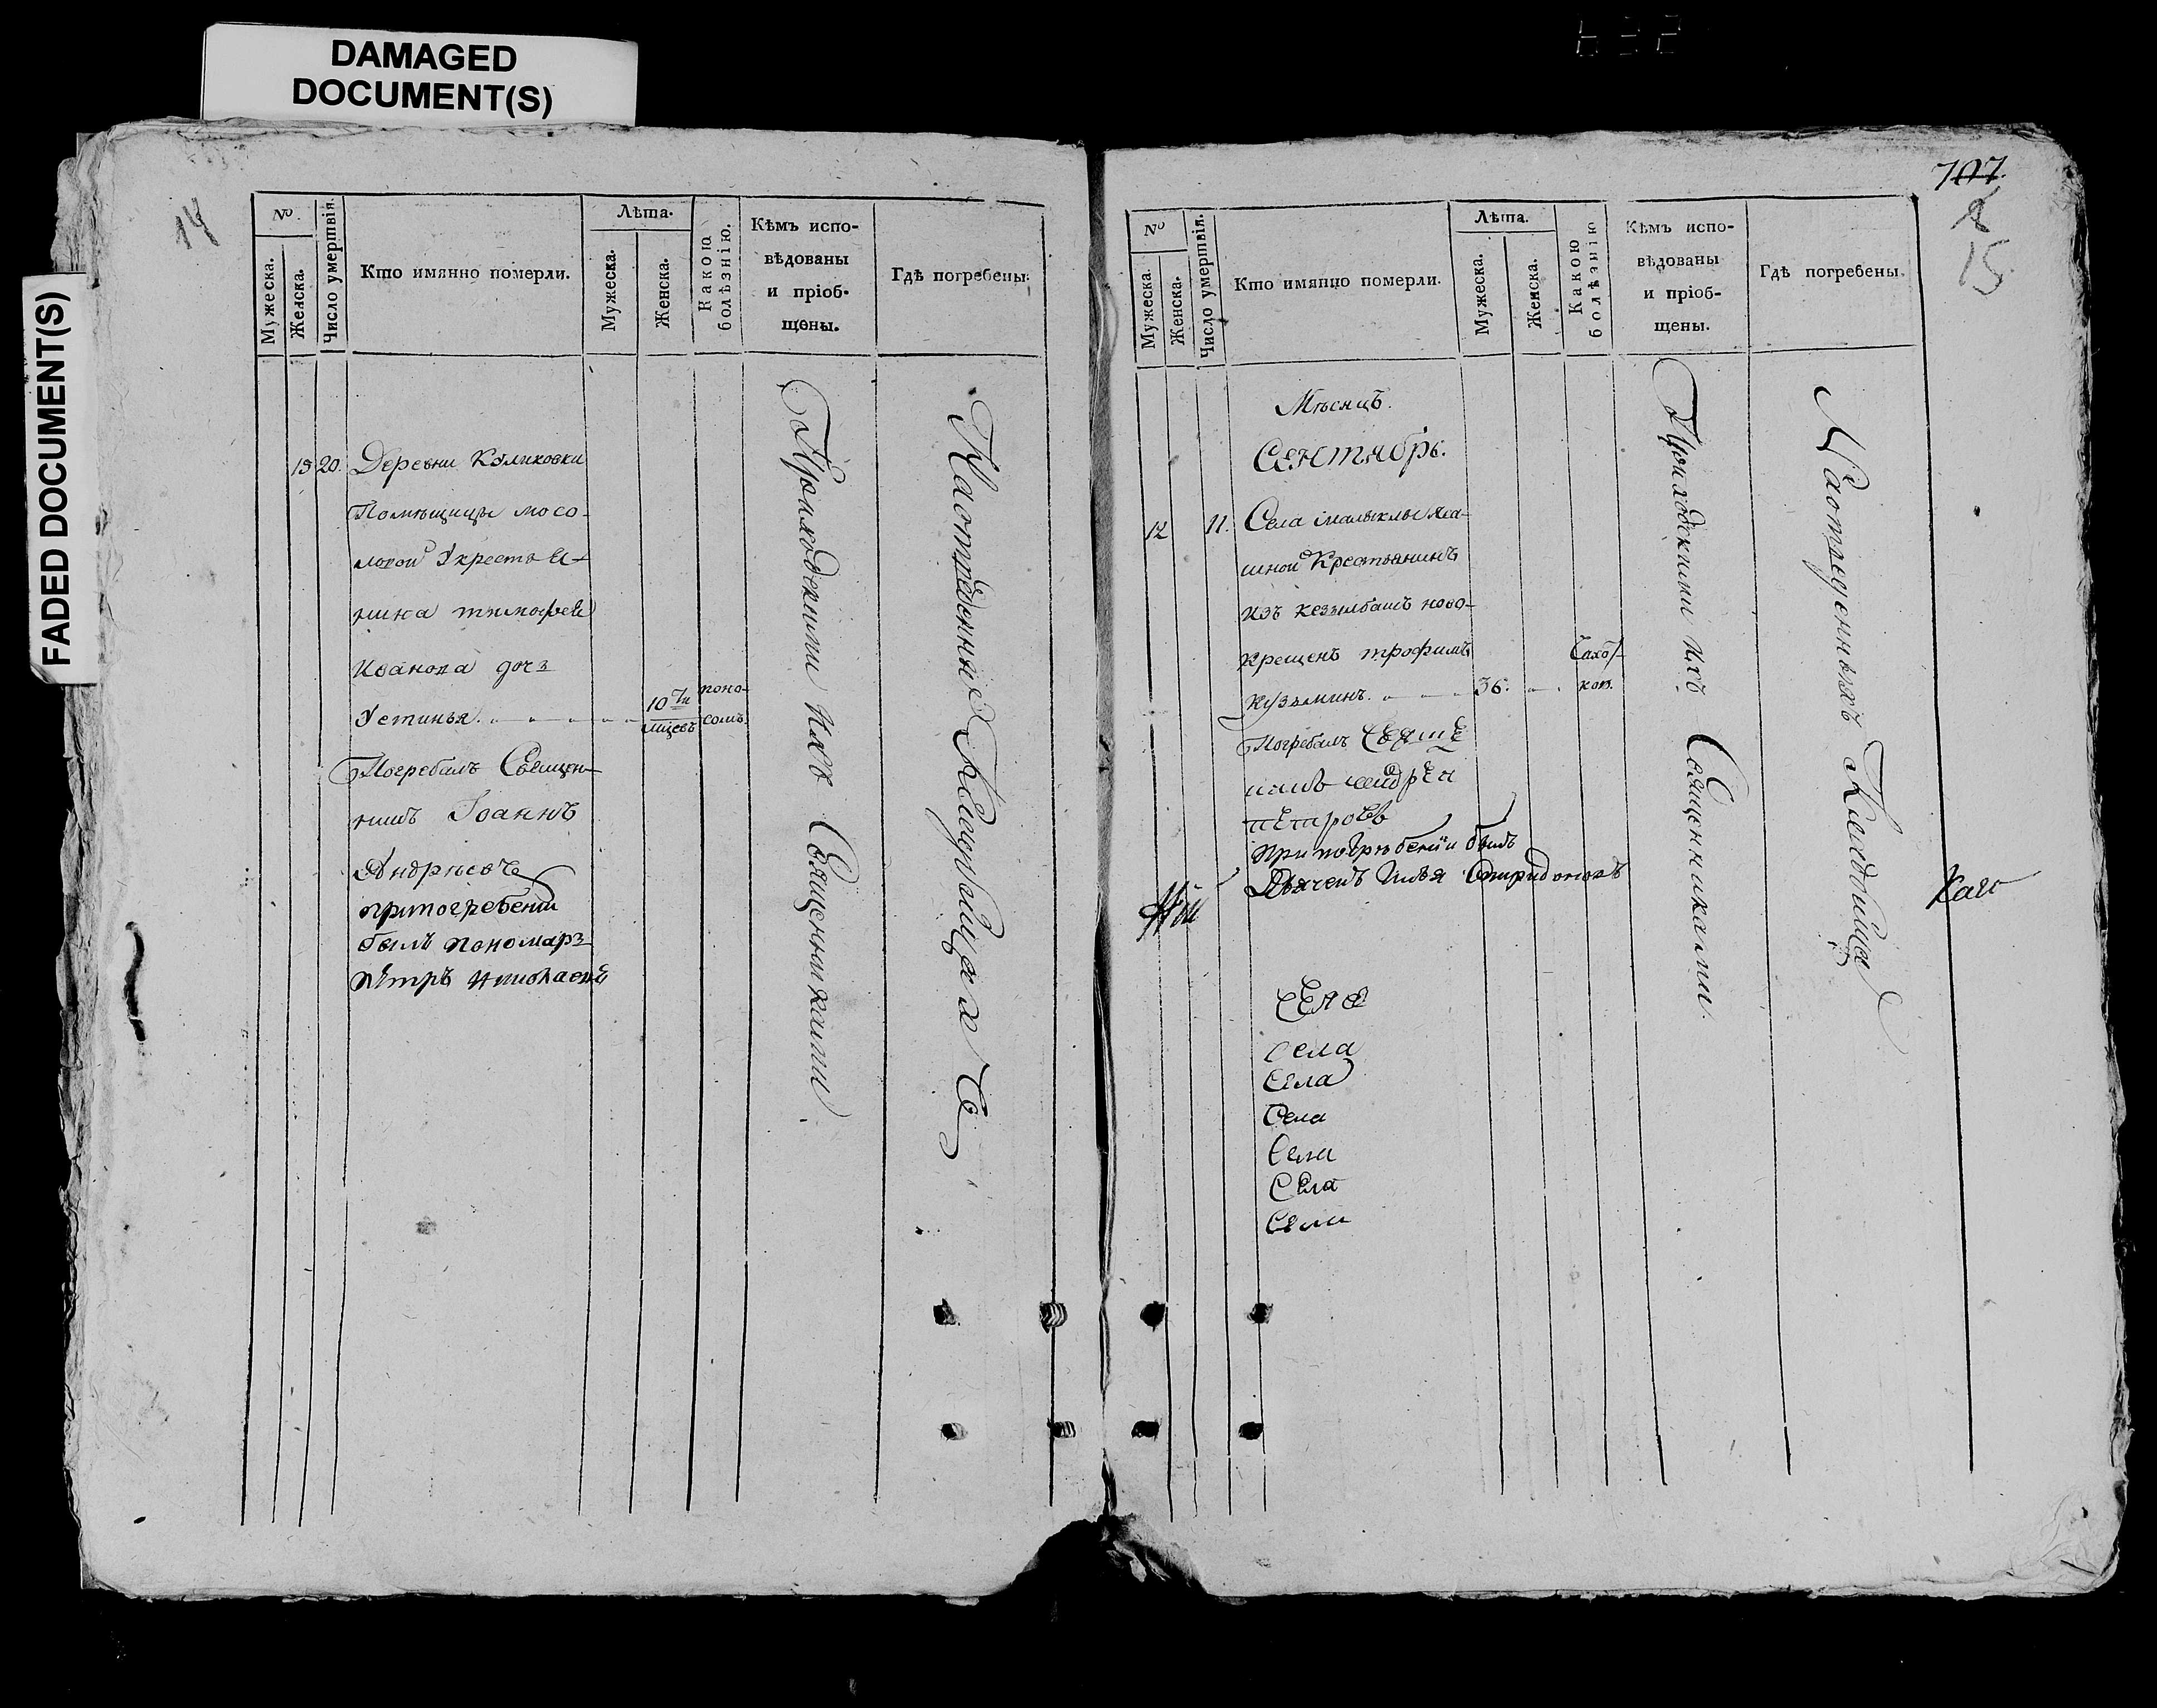 DAMAGED
DOCUMENT(S)
FADED DOCUMENT(S)
14
№.
Мужеска.
Женска.
Число умертвія.
Кто имянно померли.
Лѣта.
Мужеска.
Женска.
Какою
болѣзнію.
Кѣмъ испо-
вѣдованы
и пріоб-
щены.
Гдѣ погребены.
20. Деревни Куликовки
Помѣщицы мосо-
ловой
нина тимофея
Иванова дочь
Устинья.
10ти
мцевъ
поно-
сомъ.
Погребалъ Священ-
никъ Іоаннъ
Андрѣевъ
припогребеніи
былъ пономарь
Пѣтръ Николаевъ
Приходскими ихъ Священниками
Наотведенных Кладбищах
707
15
№
Мужеска.
Женска.
Число умертвія.
Кто имянно померли.
Лѣта.
Мужеска.
Женска.
Какою
болѣзнію
Кѣмъ испо-
вѣдованы
и пріоб-
щены.
Гдѣ погребены.
Мѣсяцъ.
Сентябрь.
12
11. Села
шной Крестьянинъ
изъ кезылбашъ ново-
крещенъ трофимъ
кузьминъ.
36.
Погребалъ Свяще
никъ андрей
пѣтровъ
При погрѣбеніи былъ
Дьячекъ Илья Спиридоновъ
Приходскими ихъ Священниками.
Наотведенныхъ Кладбищах
Села
Села
Села
Села
Села
Села
Села